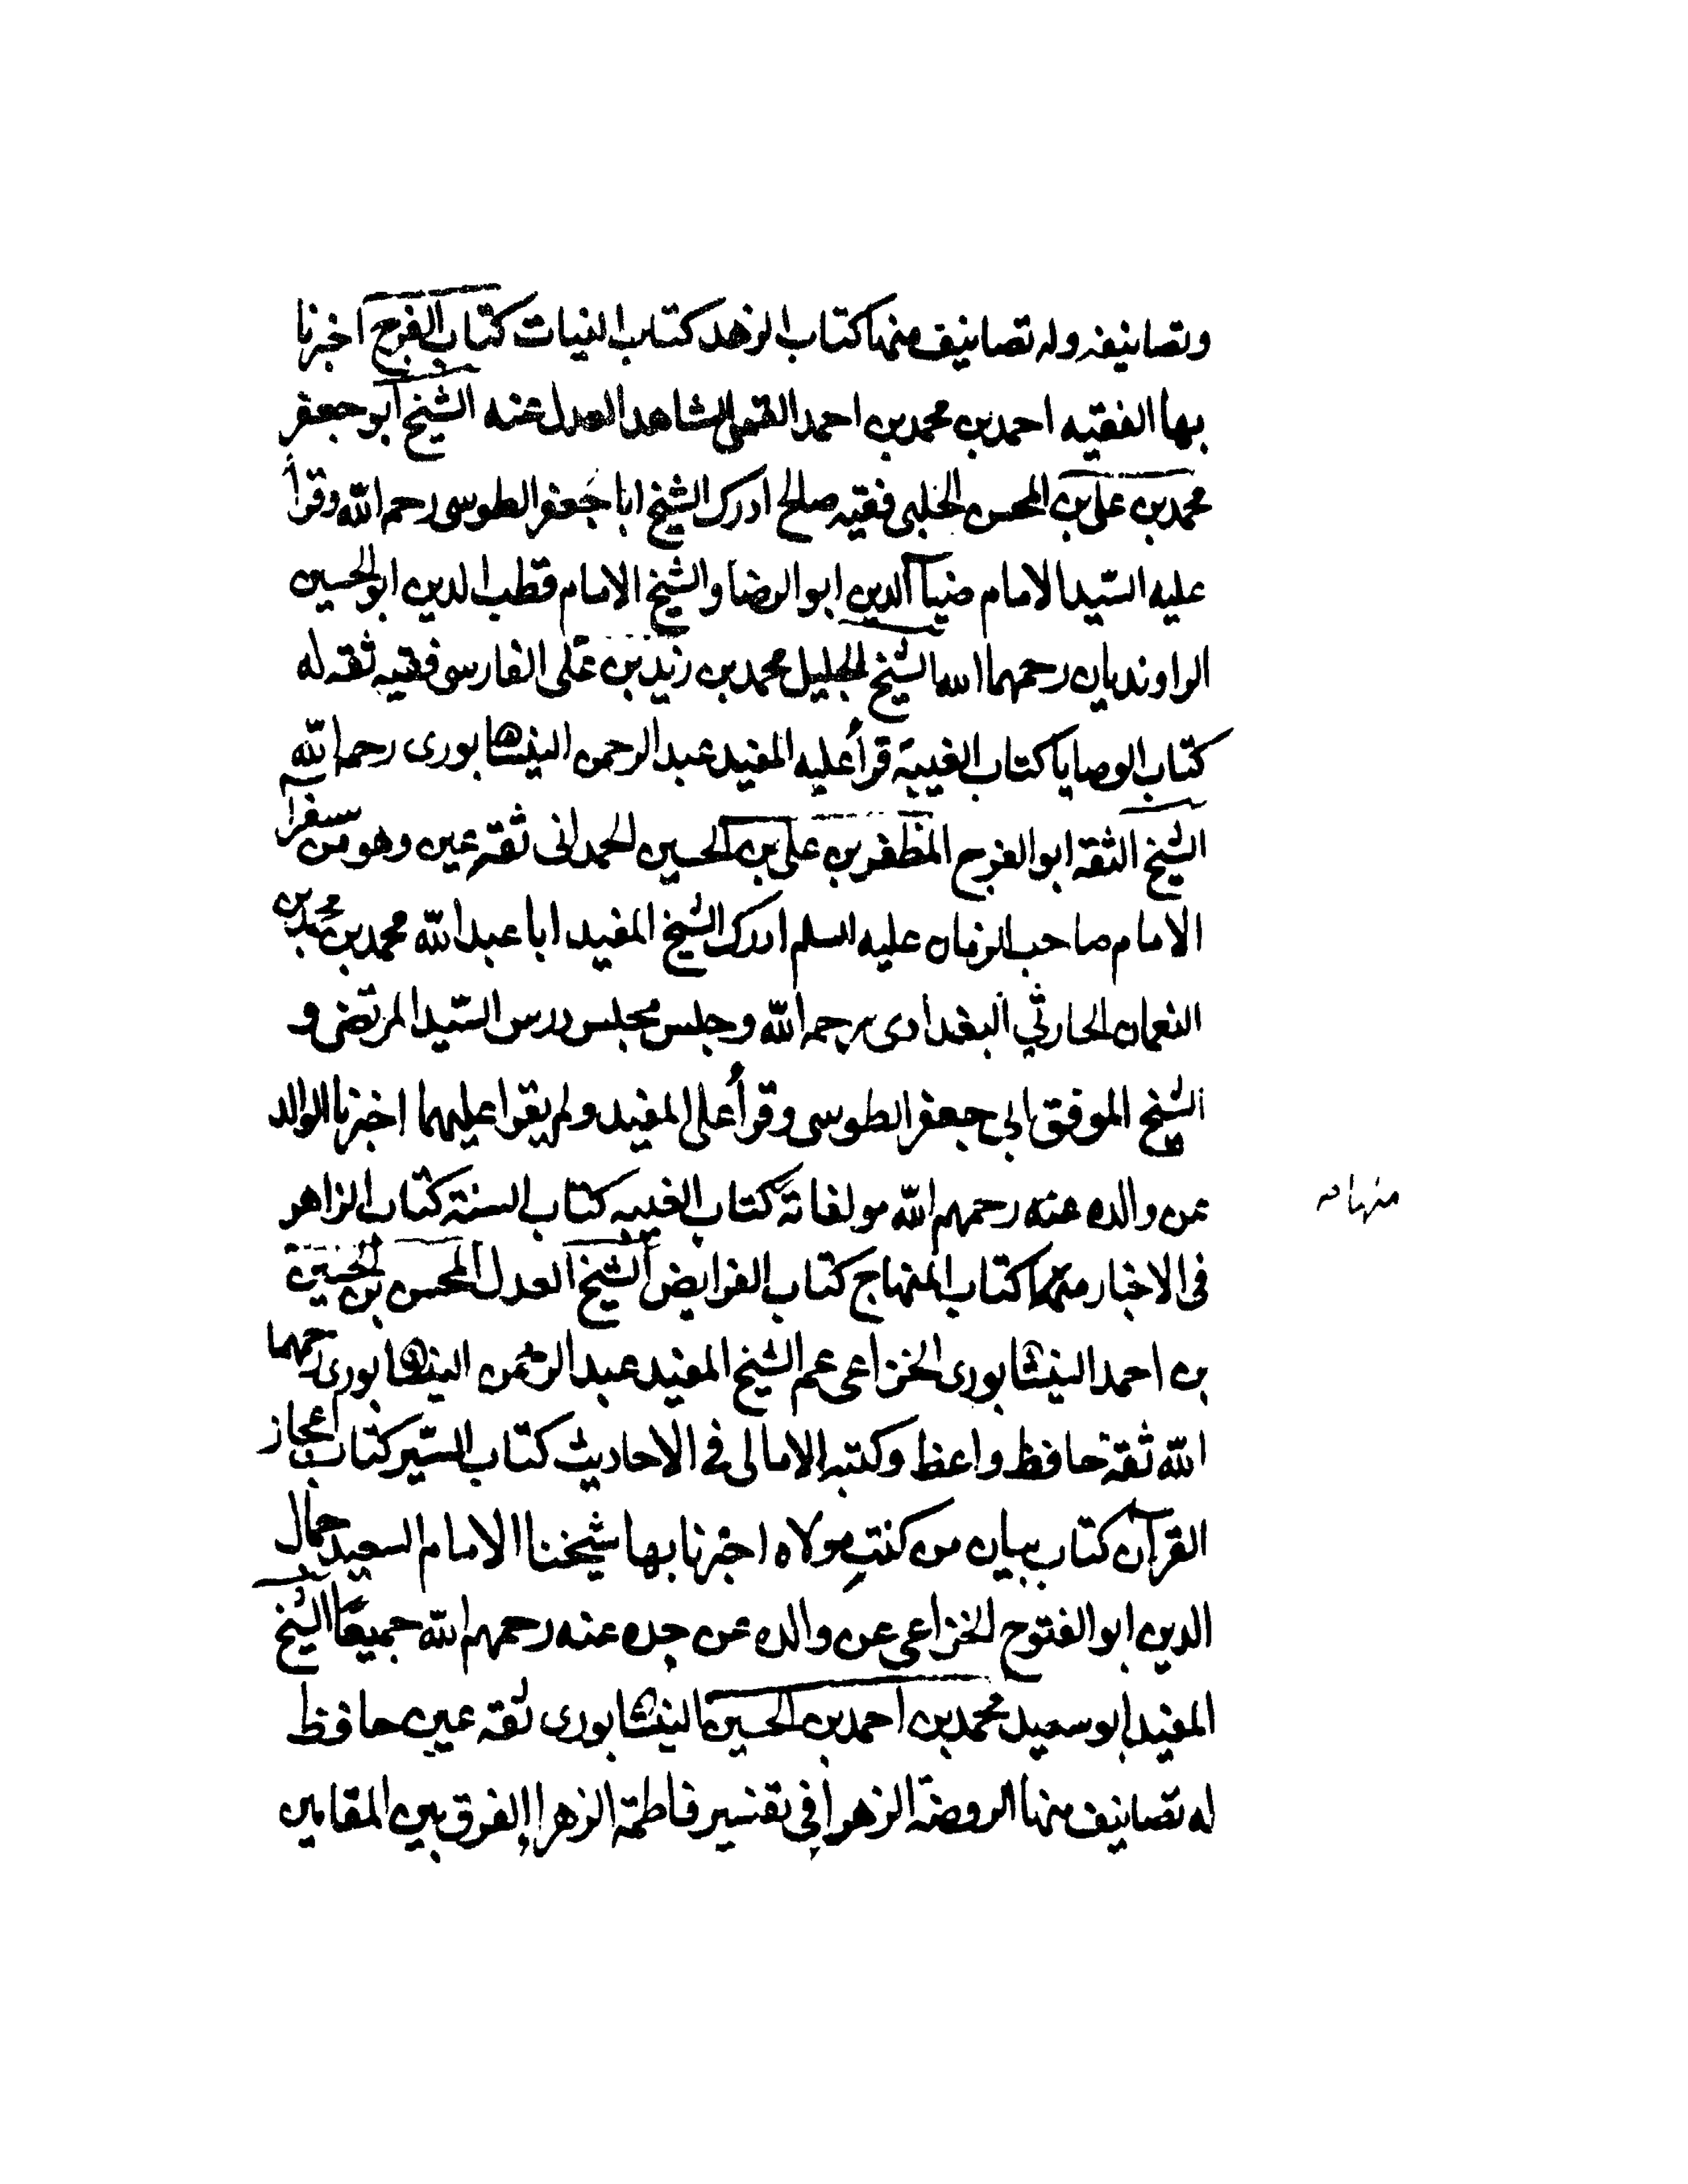 وتصانيفه وله تصانيف منها كتاب الزهد كتاب النيات كتاب الفرج اخبرنا
بها الفقيه احمد بن محمد بن احمد القمى الشاهد العدل عنه الشيخ ابو جعفر
محمد بن على بن المحسن الحلبى فقيه صالح ادرك الشيخ ابا جعفر الطوسى رحمه الله وقرأ
عليه السّيد الامام ضياء الدين ابو الرضا والشيخ الامام قطب الدين ابو الحسين
الراونديان رحمهما الله الشيخ الجليل محمد بن زيد بن على الفارسى فقيه ثقه له
كتاب الوصايا كتاب الغيبة قرأ عليه المفيد عبد الرحمن النيشابورى رحمه الله
الشيخ الثقه ابو الفرج المظفر بن على بن الحسين الحمدانى ثقه عين وهو من سفرآ
الامام صاحب الزمان عليه السلم ادرك الشيخ المفيد ابا عبد الله محمد بن محمد بن
النعمان الحارثي البغدادى رحمه الله وجلس مجلس درس السّيد المرتضى و
الشيخ الموفق ابي جعفر الطوسى وقرأ على المفيد ولم يقرا عليهما اخبرنا الوالد
عن والده عنه رحمهم الله مولفاته كتاب الغيبه كتاب السنة كتاب الزاهر
منها
فى الاخبار كتاب المنهاج كتاب الفرايض الشيخ العدل المحسن بن الحسين
بن احمد النيشابورى الخزاعى عم الشيخ المفيد عبد الرحمن النيشابورى رحمهما
الله ثقة حافظ واعظ وكتبه الامالى في الاحاديث كتاب السّير كتاب اعجاز
القرآن كتاب بيان من كنت مولاه اخبرنا بها شيخنا الامام السعيد جمال
الدين ابو الفتوح الخزاعى عن والده عن جده عنه رحمهم الله جميعًا الشيخ
المفيد ابو سعيد محمد بن احمد بن الحسين النيشابورى ثقه عين حافظ
له تصانيف منها الروضة الزهرا فى تفسير فاطمة الزهرا الفرق بين المقامين